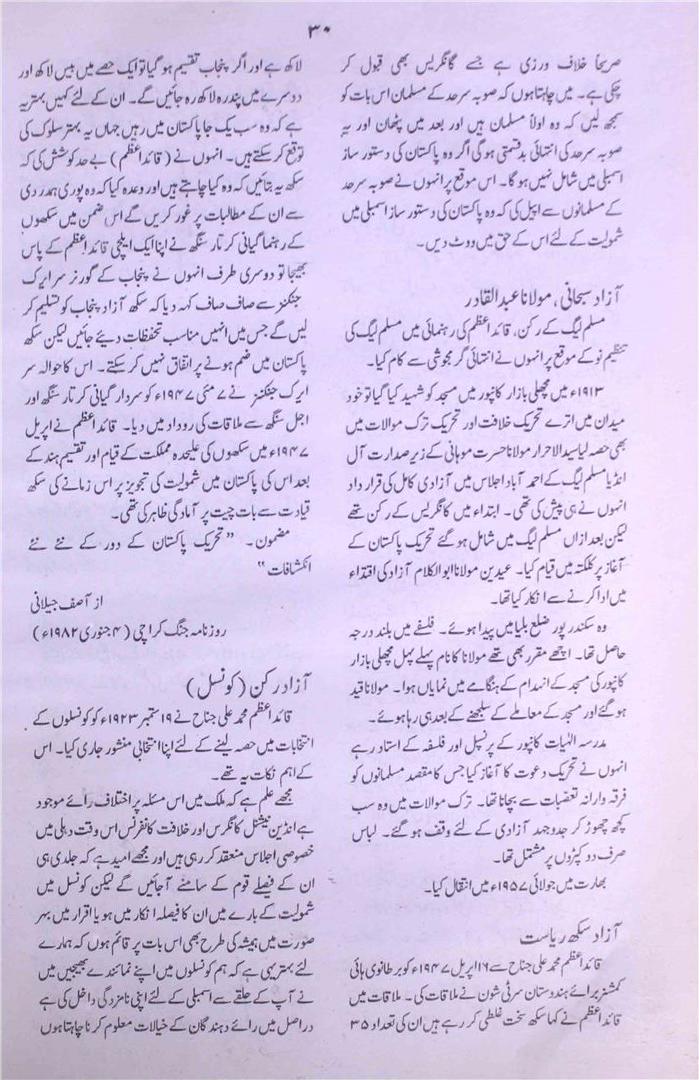 ۳۰
صریحاً خلاف ورزی ہے جسے کانگریس بھی قبول کر
چکی ہے۔ میں چاہتا ہوں کہ صوبہ سرحد کے مسلمان اس بات کو
سمجھ لیں کہ وہ اولاً مسلمان ہیں اور بعد میں پٹھان اور یہ
صوبہ سرحد کی انتہائی بدقسمتی ہوگی اگر وہ پاکستان کی دستور ساز
اسمبلی میں شامل نہیں ہو گا۔ اس موقع پر انہوں نے صوبہ سرحد
کے مسلمانوں سے اپیل کی کہ وہ پاکستان کی دستور ساز اسمبلی میں
شمولیت کے لئے اس کے حق میں ووٹ دیں۔
آزاد سبحانی، مولانا عبد القادر
مسلم لیگ کے رکن، قائداعظم کی رہنمائی میں مسلم لیگ کی
تنظیم نو کے موقع پر انہوں نے انتہائی گرمجوشی سے کام کیا۔
۱۹۱۳ء میں مچھلی بازار کانپور میں مسجد کو شہید کیا گیا تو خود
میدان میں اترے تحریک خلافت اور تحریک ترک موالات میں
بھی حصہ لیا سید الاحرار مولانا حسرت موہانی کے زیر صدارت آل
انڈیا مسلم لیگ کے احمد آباد اجلاس میں آزادی کامل کی قرار داد
انہوں نے ہی پیش کی تھی۔ ابتداء میں کانگریس کے رکن تھے
لیکن بعد ازاں مسلم لیگ میں شامل ہو گئے تحریک پاکستان کے
آغاز پر کلکتہ میں قیام کیا۔ عیدین مولانا ابو الکلام آزاد کی اقتداء
میں ادا کرنے سے انکار کیا تھا۔
وہ سکندر پور ضلع بلیا میں پیدا ہوئے۔ فلسفے میں بلند درجہ
حاصل تھا۔ اچھے مقرر بھی تھے مولانا کا نام پہلے پہل مچھلی بازار
کانپور کی مسجد کے انہدام کے ہنگامے میں نمایاں ہوا۔ مولانا قید
ہو گئے اور مسجد کے معاملے کے سلجھنے کے بعد ہی رہا ہوئے۔
مدرسہ الہیات کانپور کے پرنسپل اور فلسفہ کے استاد رہے
انہوں نے تحریک دعوت کا آغاز کیا جس کا مقصد مسلمانوں کو
فرقہ وارانہ تعصبات سے بچانا تھا۔ ترک موالات میں وہ سب
کچھ چھوڑ کر جدوجہد آزادی کے لئے وقف ہو گئے۔ لباس
صرف دو کپڑوں پر مشتمل تھا۔
بھارت میں جولائی ۱۹۵۷ء میں انتقال کیا۔
آزاد سکھ ریاست
قائداعظم محمد علی جناح سے ۱۶ اپریل ۱۹۴۷ء کو برطانوی ہائی
کمشنر برائے ہندوستان سر ٹی شون نے ملاقات کی۔ ملاقات میں
قائداعظم نے کہا سکھ سخت غلطی کر رہے ہیں ان کی تعداد ۳۵
لاکھ ہے اور اگر پنجاب تقسیم ہو گیا تو ایک حصے میں بیس لاکھ اور
دوسرے میں پندرہ لاکھ رہ جائیں گے۔ ان کے لئے کہیں بہتر یہ
ہے کہ وہ سب یک جا پاکستان میں رہیں جہاں یہ بہتر سلوک کی
توقع کر سکتے ہیں۔ انہوں نے (قائداعظم) بے حد کوشش کی کہ
سکھ یہ بتائیں کہ وہ کیا چاہتے ہیں اور وعدہ کیا کہ وہ پوری ہمدردی
سے ان کے مطالبات پر غور کریں گے اس ضمن میں سکھوں
کے رہنما گیانی کرتار سنگھ نے اپنا ایک ایلچی قائداعظم کے پاس
بھیجا تو دوسری طرف انہوں نے پنجاب کے گورنر سر ایرک
جنکنز سے صاف صاف کہہ دیا کہ سکھ آزاد پنجاب کو تسلیم کر
لیں گے جس میں انہیں مناسب تحفظات دیئے جائیں لیکن سکھ
پاکستان میں ضم ہونے پر اتفاق نہیں کر سکتے۔ اس کا حوالہ سر
ایرک جنکنز نے ۷ مئی ۱۹۴۷ء کو سردار گیانی کرتار سنگھ اور
اجل سنگھ سے ملاقات کی روداد میں دیا۔ قائداعظم نے اپریل
۱۹۴۷ء میں سکھوں کی علیحدہ مملکت کے قیام اور تقسیم ہند کے
بعد اس کی پاکستان میں شمولیت کی تجویز پر اس زمانے کی سکھ
قیادت سے بات چیت پر آمادگی ظاہر کی تھی۔
مضمون۔ "تحریک پاکستان کے دور کے نئے نئے
انکشافات"
از آصف جیلانی
روزنامہ جنگ کراچی (۴ جنوری ۱۹۸۲ء)
آزاد رکن (کونسل)
قائداعظم محمد علی جناح نے ۱۹ ستمبر ۱۹۲۳ء کو کونسلوں کے
انتخابات میں حصہ لینے کے لئے اپنا انتخابی منشور جاری کیا۔ اس
کے اہم نکات یہ تھے۔
مجھے علم ہے کہ ملک میں اس مسئلہ پر اختلاف رائے موجود
ہے انڈین نیشنل کانگرس اور خلافت کانفرنس اس وقت دہلی میں
خصوصی اجلاس منعقد کر رہی ہیں اور مجھے امید ہے کہ جلد ہی
ان کے فیصلے قوم کے سامنے آ جائیں گے لیکن کونسل میں
شمولیت کے بارے میں ان کا فیصلہ انکار میں ہو یا اقرار میں بہر
صورت میں ہمیشہ کی طرح بھی اس بات پر قائم ہوں کہ ہمارے
لئے بہتر یہی ہے کہ ہم کونسلوں میں اپنے نمائندے بھیجیں میں
نے آپ کے حلقے سے اسمبلی کے لئے اپنی نامزدگی داخل کی ہے
دراصل میں رائے دہندگان کے خیالات معلوم کرنا چاہتا ہوں